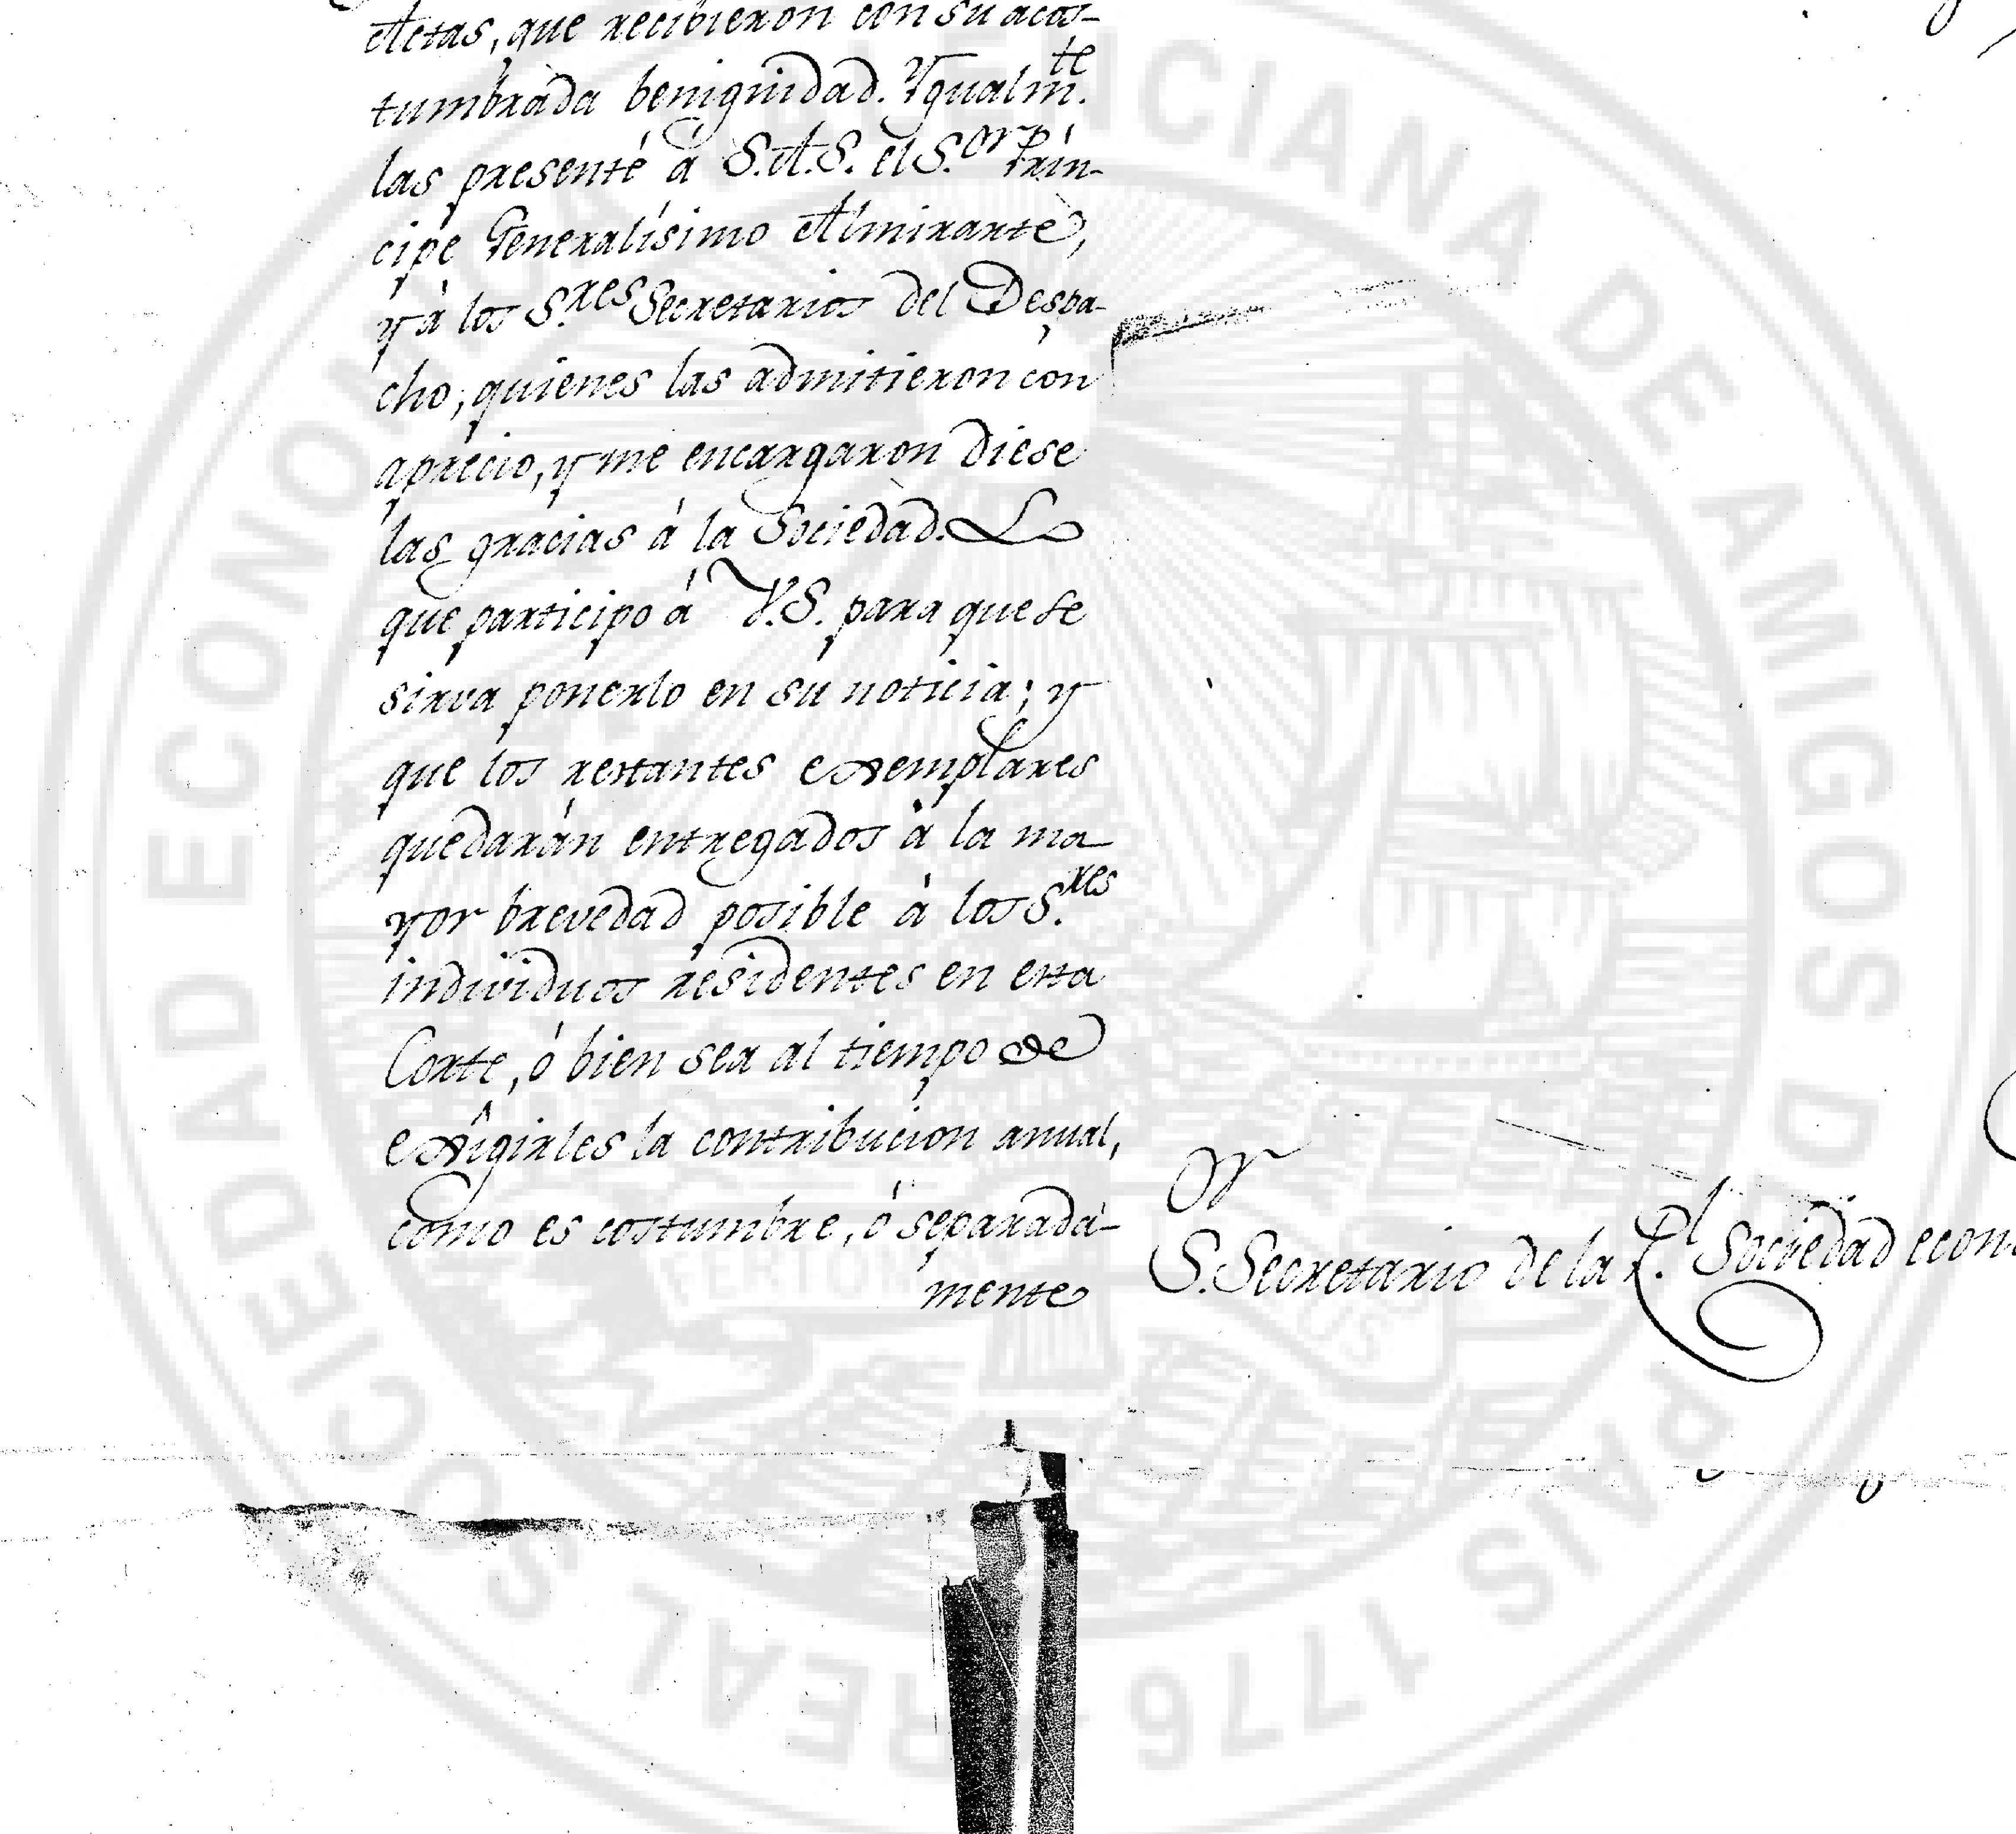 Actas, que recibieron con su acos-
tumbrada benignidad. Ygualm.te
las presenté á S.A.S. el S.or Prin-
cipe Generalísimo Almirante,
y á los S.res Secretarios del Despa-
cho; quienes las admitieron con
aprecio, y me encargaron diese
las gracias á la Sociedad. Lo
que participo á V.S. para que se
sirva ponerlo en su noticia; y
que los restantes exemplares
quedarán entregados á la ma-
yor brevedad posible á los S.res
individuos residentes en esta
Corte, ó bien sea al tiempo de
exîgirles la contribucion anual,
como es costumbre, ó separada-
mente
S.or Secretario de la R.l Sociedad econo
REAL SOCIEDAD ECONOMICA VALENCIANA DE AMIGOS DEL PAIS 1776